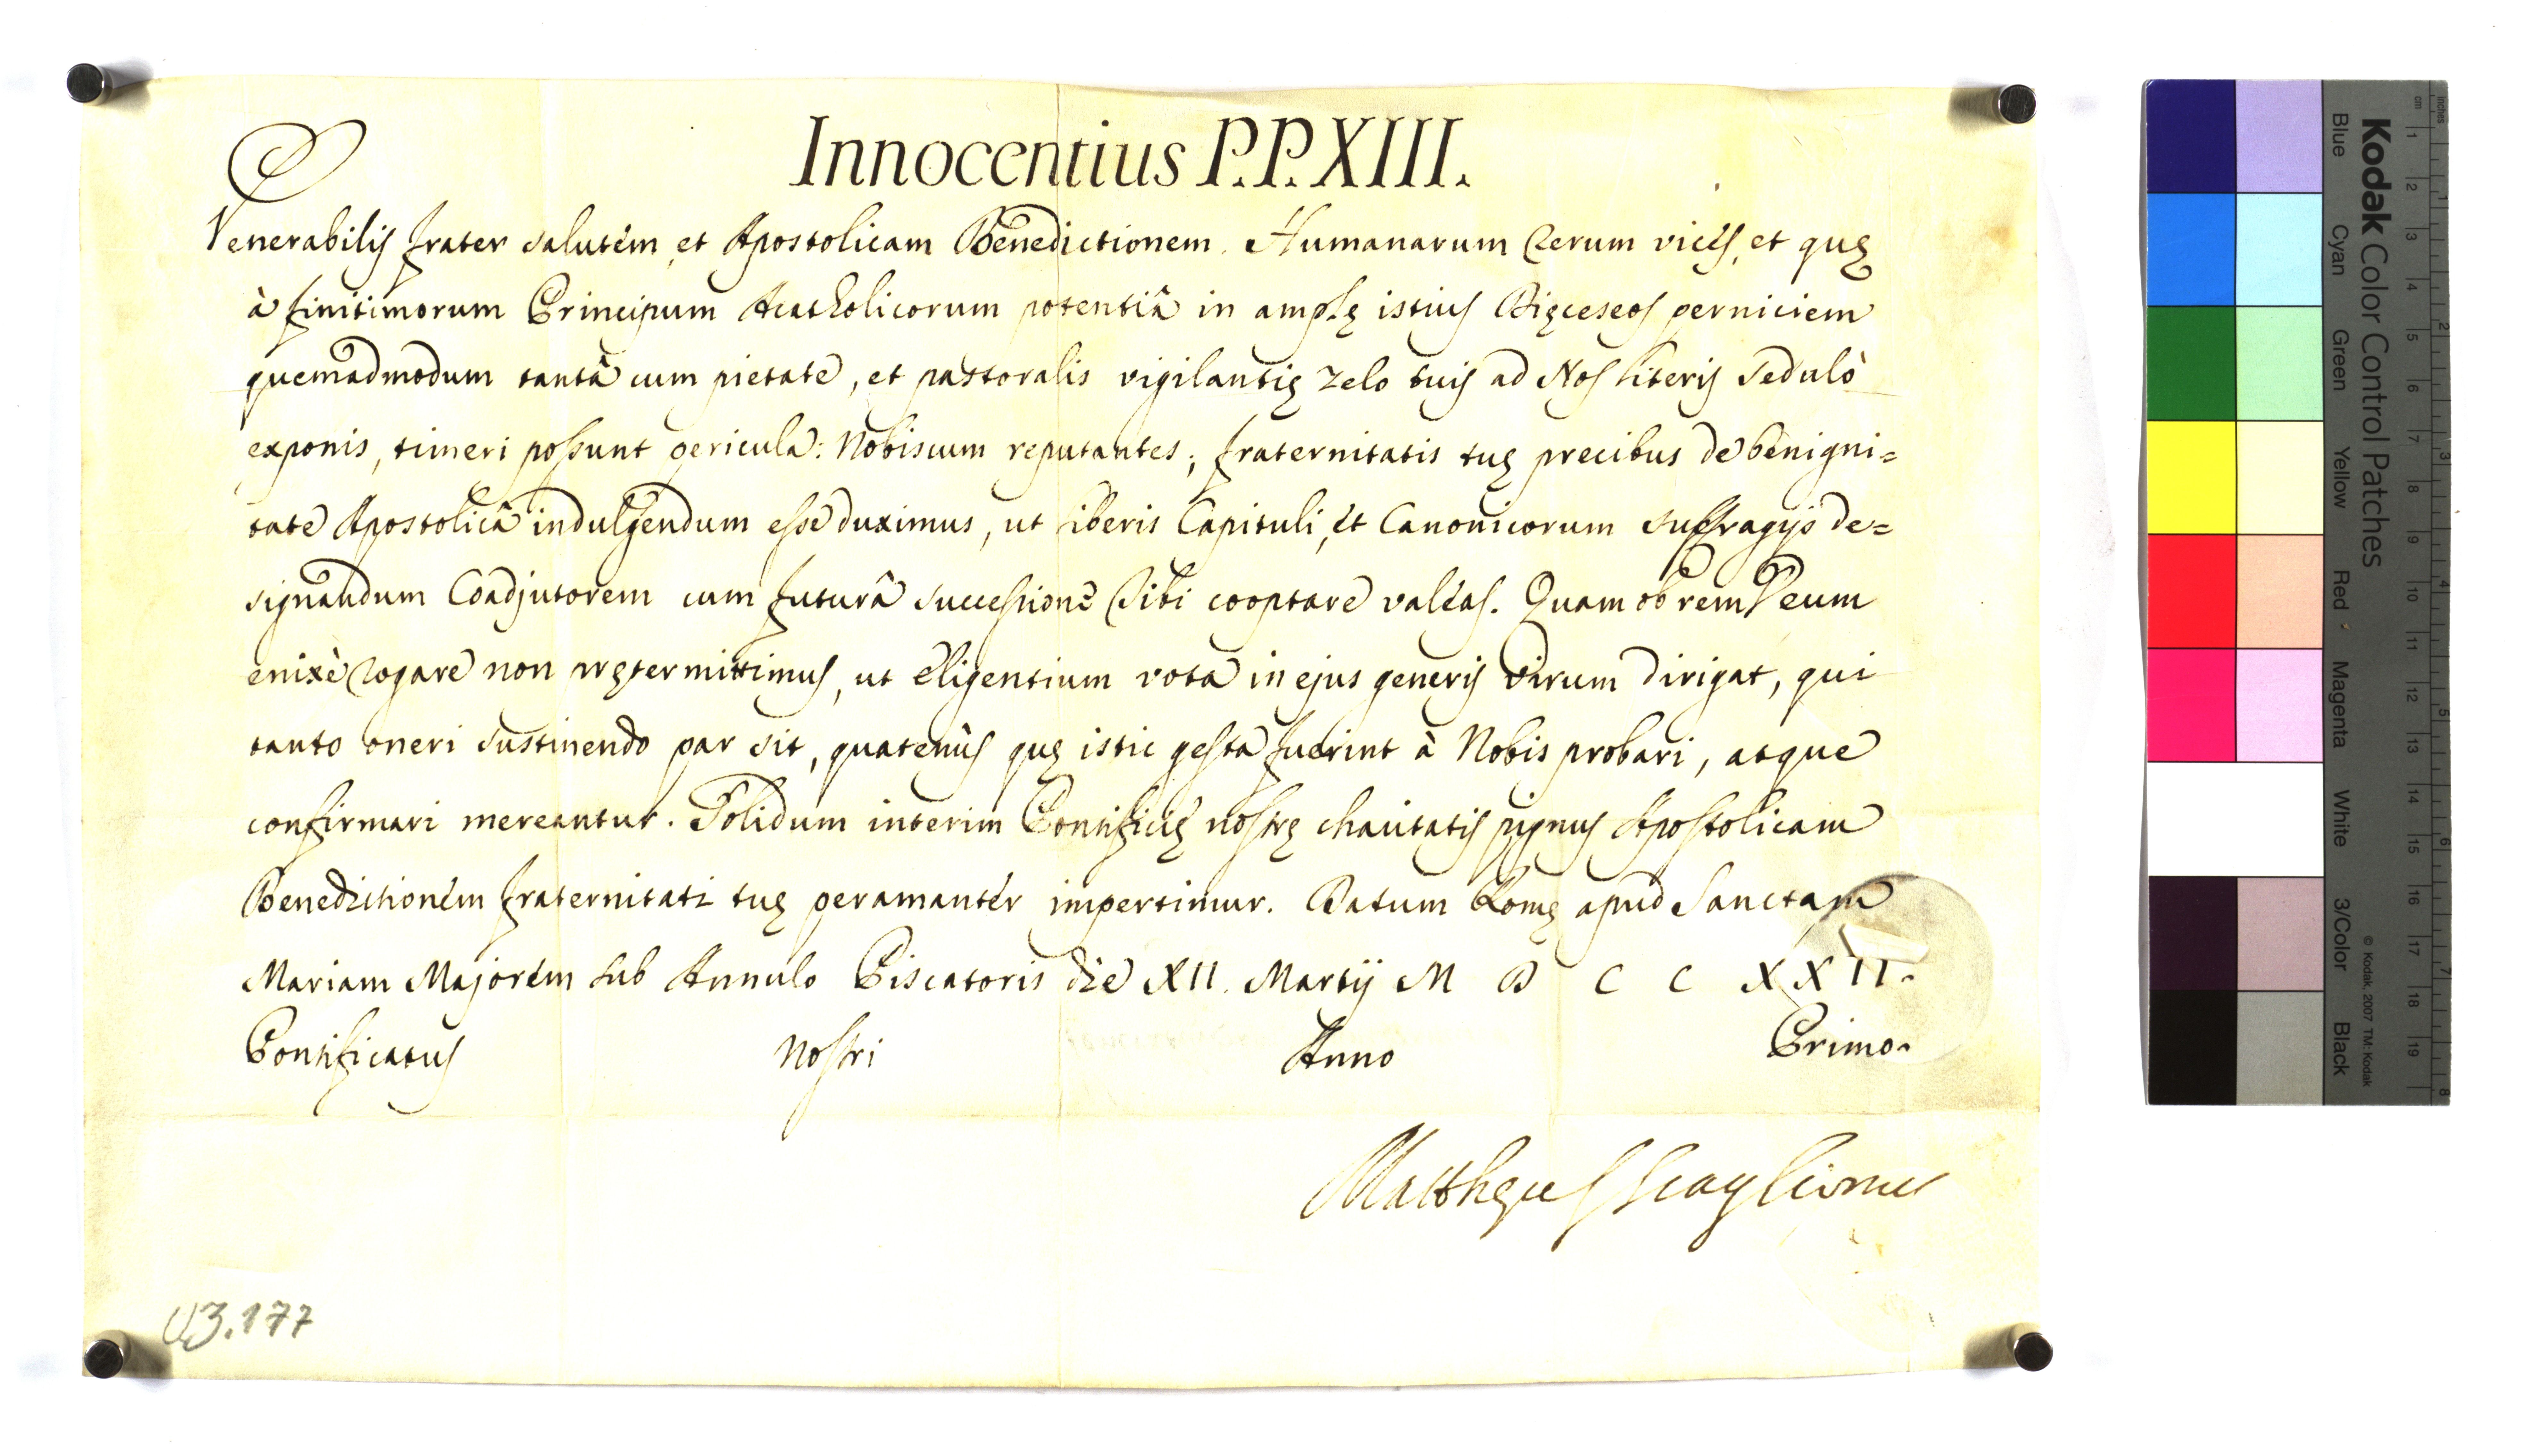 Innocentius P.P. XIII.
Venerabilis frater salutem, et Apostolicam Benedictionem. Humanarum rerum vices, et quę
à finitimorum Principum Acatholicorum potentiâ in amplę istius Dięceseos perniciem
quemadmodum tantâ cum pietate, et pastoralis vigilantię zelo tuis ad Nos literis sedulò
exponis, timeri possunt pericula: Nobiscum reputantes; fraternitatis tuę precibus de benigni=
tate Apostolicâ indulgendum esse duximus, ut liberis Capituli, et Canonicorum suffragijs de=
signandum Coadjutorem cum futurâ successione Tibi cooptare valeas. Quam ob rem Deum
enixè rogare non prętermittimus, ut eligentium vota in ejus generis virum dirigat, qui
tanto oneri sustinendo par sit, quatenùs quę istic gesta fuerint à Nobis probari, atque
confirmari mereantur. Solidum interim Pontificię nostrę charitatis pignus Apostolicam
Benedictionem fraternitati tuę peramanter impertimur. Datum Romę apud Sanctam
Mariam Majorem sub Annulo Piscatoris die XII. Martij M D C C X X I I.
Pontificatus nostri Anno Primo.
Matthęus Scaglionus
U3.177
Kodak Color Control Patches
© Kodak, 2007 TM: Kodak
Blue Cyan Green Yellow Red Magenta White 3/Color Black
cm 1 2 3 4 5 6 7 8 9 10 11 12 13 14 15 16 17 18 19
inches 1 2 3 4 5 6 7 8